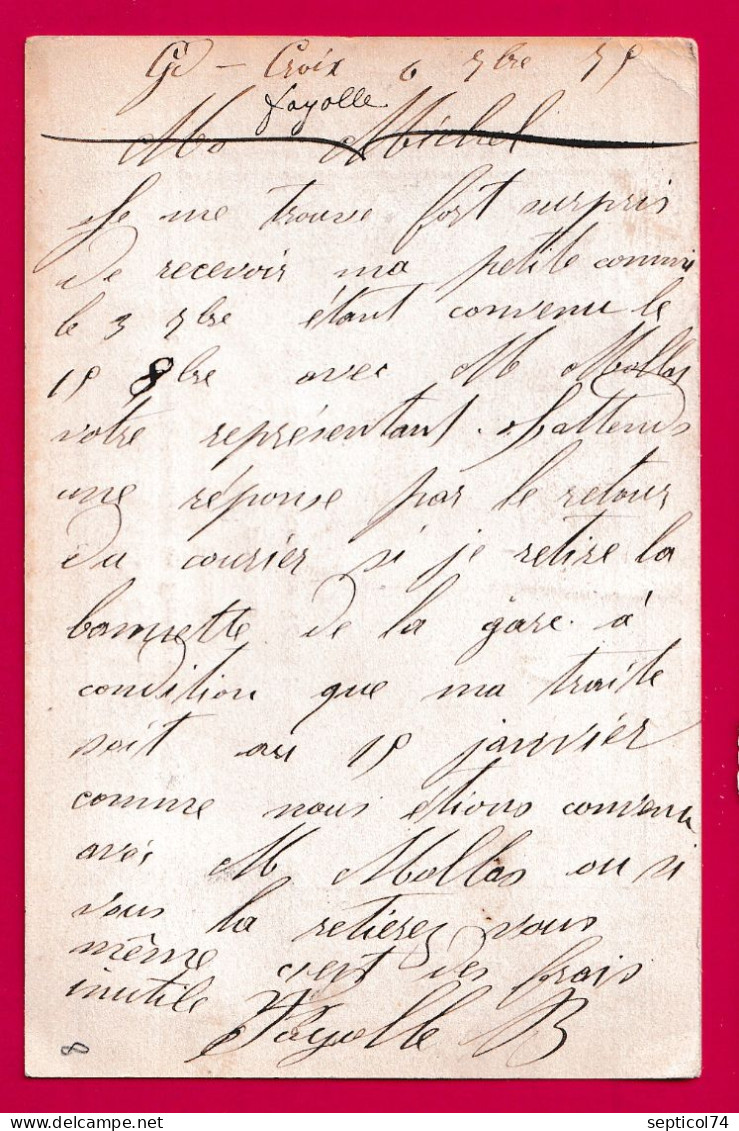 Gd - Croix 6 7bre 75
Fayolle
Mr Michel
Je me trouve fort surpris
de recevoir ma petite commi
le 3 7bre étant convenu le
15 8bre avec M Mollas
votre représentant. J'attends
une réponse par le retour
du courier si je retire la
banuette de la gare à
condition que ma traite
soit au 15 janvier
comme nous étions convenu
avec M. Mollas ou si
vous la retierez vous
même c'est des frais
inutile Fayolle B
8
septicol74